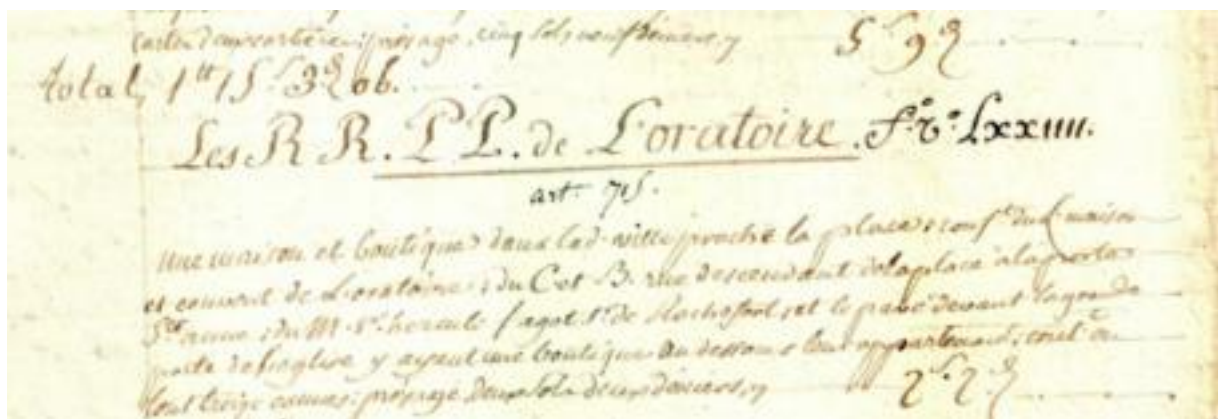 cinq sols neuf deniers, y 5 s 9 d
total, 1 tt 15 s 3 d ob.
Les R R. P P. de L'oratoire. f.o v.o Lxxiiii.
art. 715.
une maison et boutique dans lad. ville proche la place; conf.t du L. maison
et couvent de L'oratoire; du C. et B. rue descendant de la place a la porte
S.te anne; du M. S.r hercule fagot S.r de Rochefort, et le pavé devant la grande
porte de l'eglise y ayant une boutique au dessous leur appartenant; tout
tout treize cannes; presage deux sols deux deniers, y 2 s 2 d